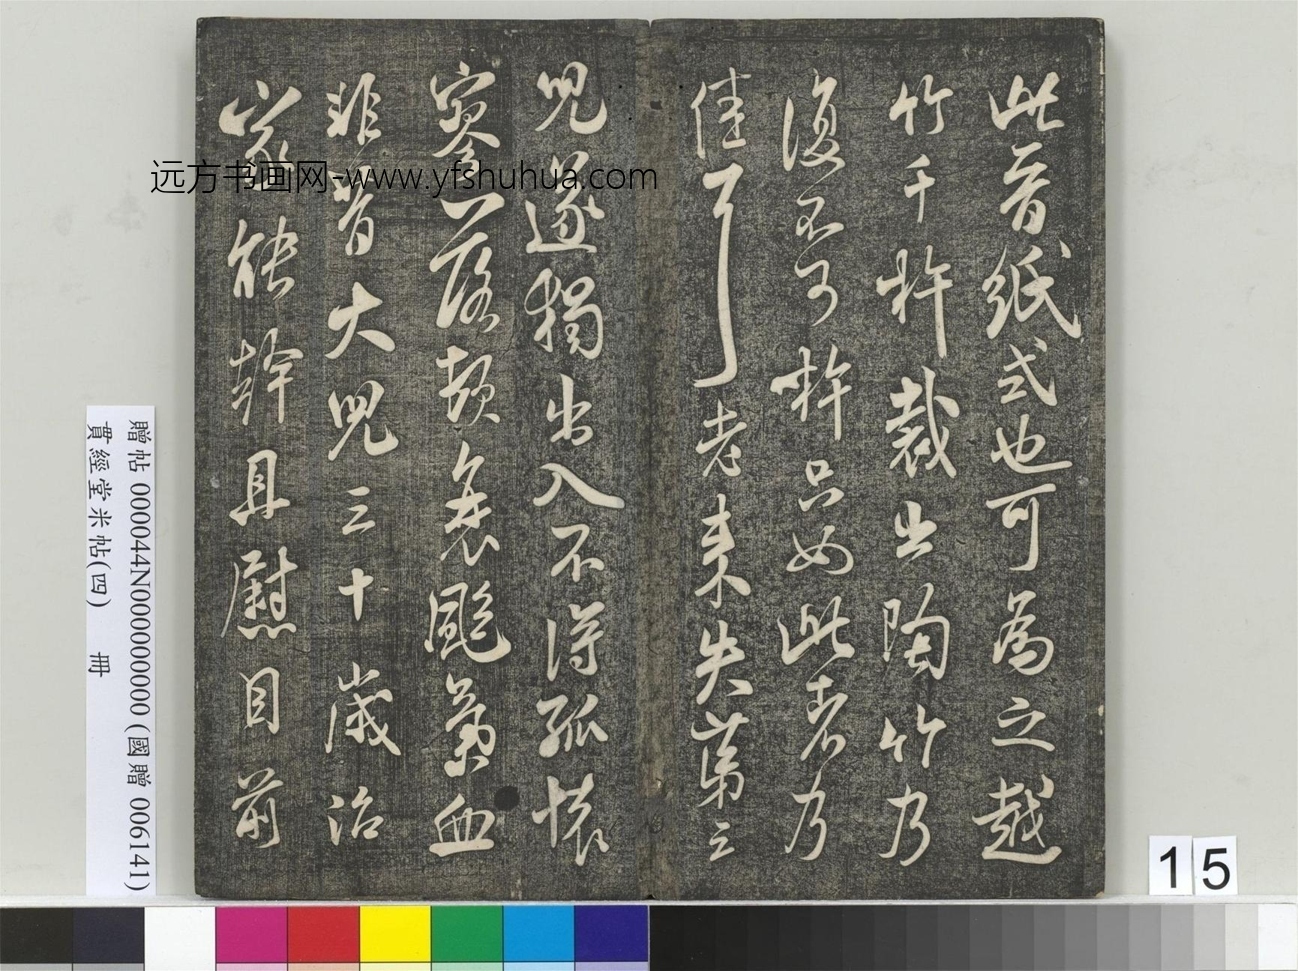 此晉紙式也可為之越
竹千杵裁出陶竹乃
復不可杵只如此者乃
佳耳老来失第三
兒遂獨出入不得孤懷
寥落頓衰颯氣血
非昔大兒三十歲治
家能幹且慰目前
远方书画网-www.yfshuhua.com
贈帖 000044N000000000 (國贈 006141)
貫經堂米帖(四) 冊
15